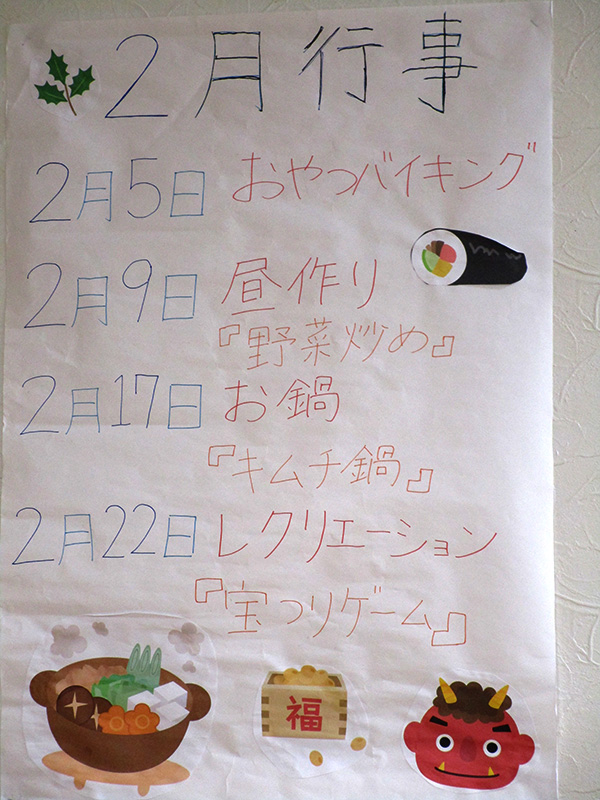 2月行事
2月5日 おやつバイキング
2月9日 昼作り
『野菜炒め』
2月17日 お鍋
『キムチ鍋』
2月22日 レクリエーション
『宝つりゲーム』
福